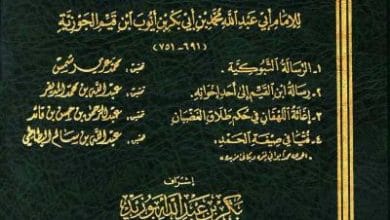 للإمام أبي عبد الله محمد بن أبي بكر بن أيوب ابن قيم الجوزية
(٦٩١ - ٧٥١)
١. الرسالة التبوكية. تحقيق: محمد عزير شمس
٢. رسالة ابن القيم إلى أحد إخوانه. تحقيق: عبد الله بن محمد المديفر
٣. إغاثة اللهفان في حكم طلاق الغضبان تحقيق: عبد الرحمن بن حسن بن قائد
٤. فتيا في صيغة الحمد. تحقيق: عبد الله بن سالم البطاطي
إشراف
بكر بن عبد الله أبو زيد